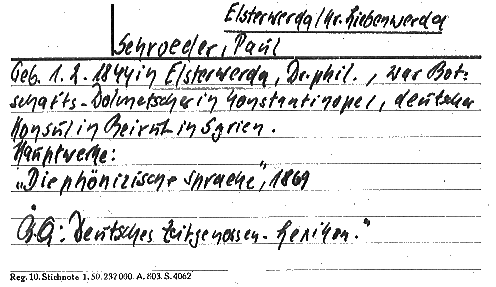 Elsterwerda/Kr. Liebenwerda
Schroeder, Paul
Geb. 1. 2. 1844 in Elsterwerda, Dr. phil., war Bot-
schafts-Dolmetscher in Konstantinopel, deutscher
Konsul in Beirut in Syrien.
Hauptwerke:
„Die phönizische Sprache", 1869
Q.A: Deutsches Zeitgenossen-Lexikon."
Reg. 10. Stichnote 1. 50. 232 000. A. 803. S. 4062